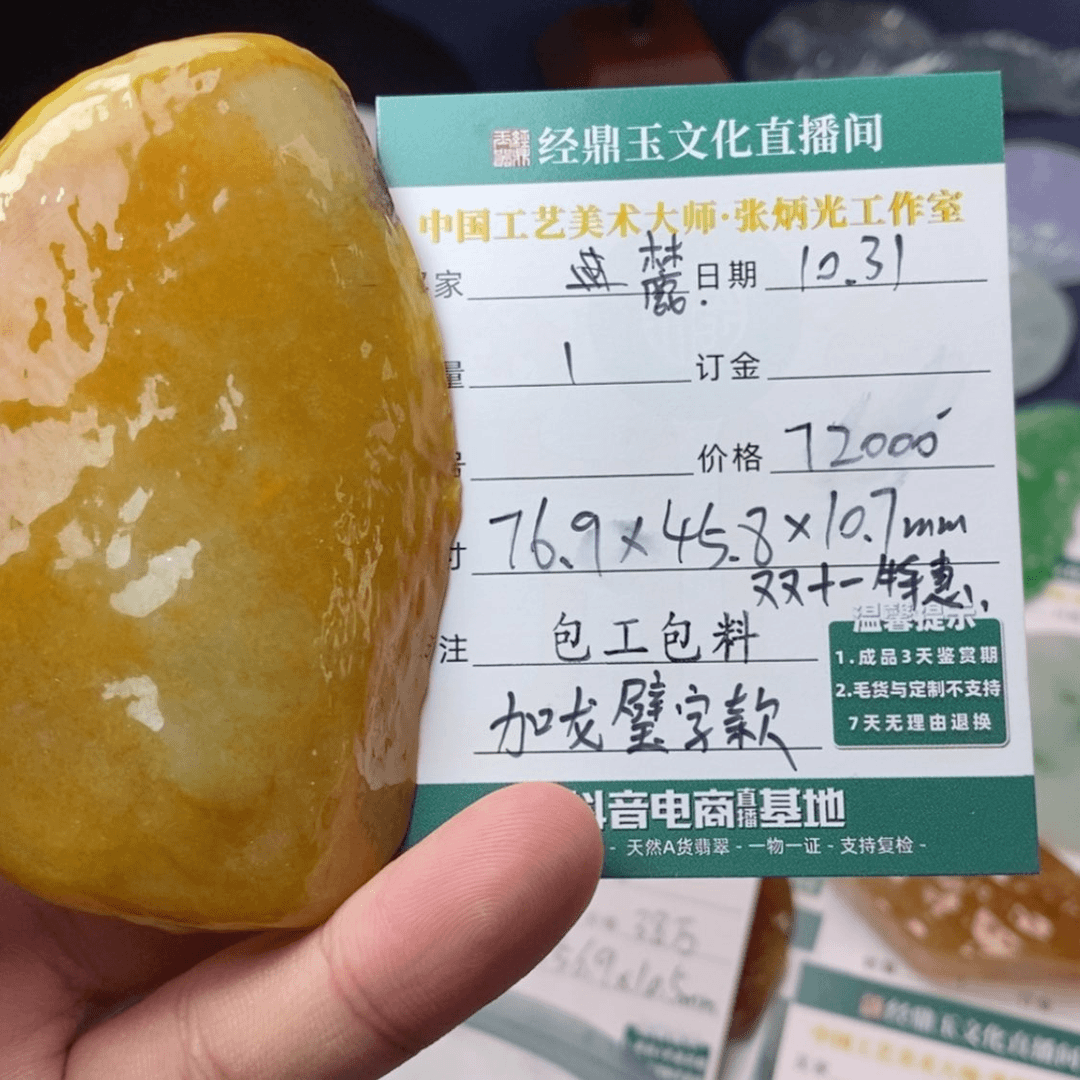 经鼎玉文化直播间
中国工艺美术大师·张炳光工作室
家 日期 10.31
量 1 订金
号 价格 72000
寸 76.9×45.8×10.7mm
双十一特惠
注 包工包料
加龙璧字款
温馨提示
1.成品3天鉴赏期
2.毛货与定制不支持
7天无理由退换
抖音电商直播基地
- 天然A货翡翠 - 一物一证 - 支持复检 -
经鼎玉文化直播间